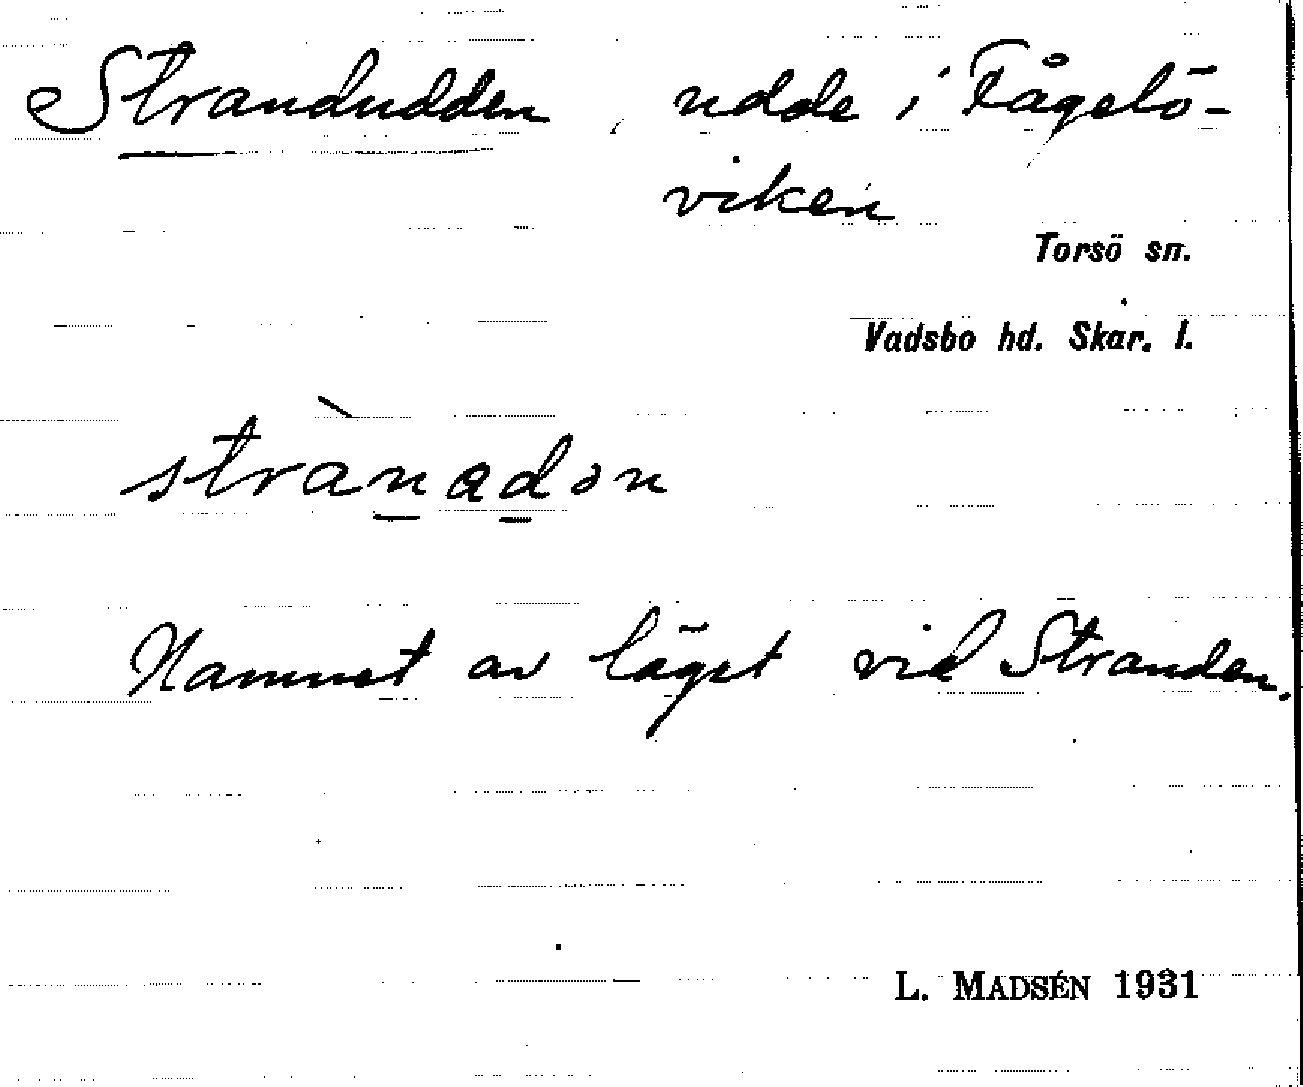 Strandudden, udde i Fågelö-
viken
Torsö sn.
Vadsbo hd. Skar. l.
stràn̲ad̲ən
Namnet av läget vid Stranden.
L. MADSÉN 1931